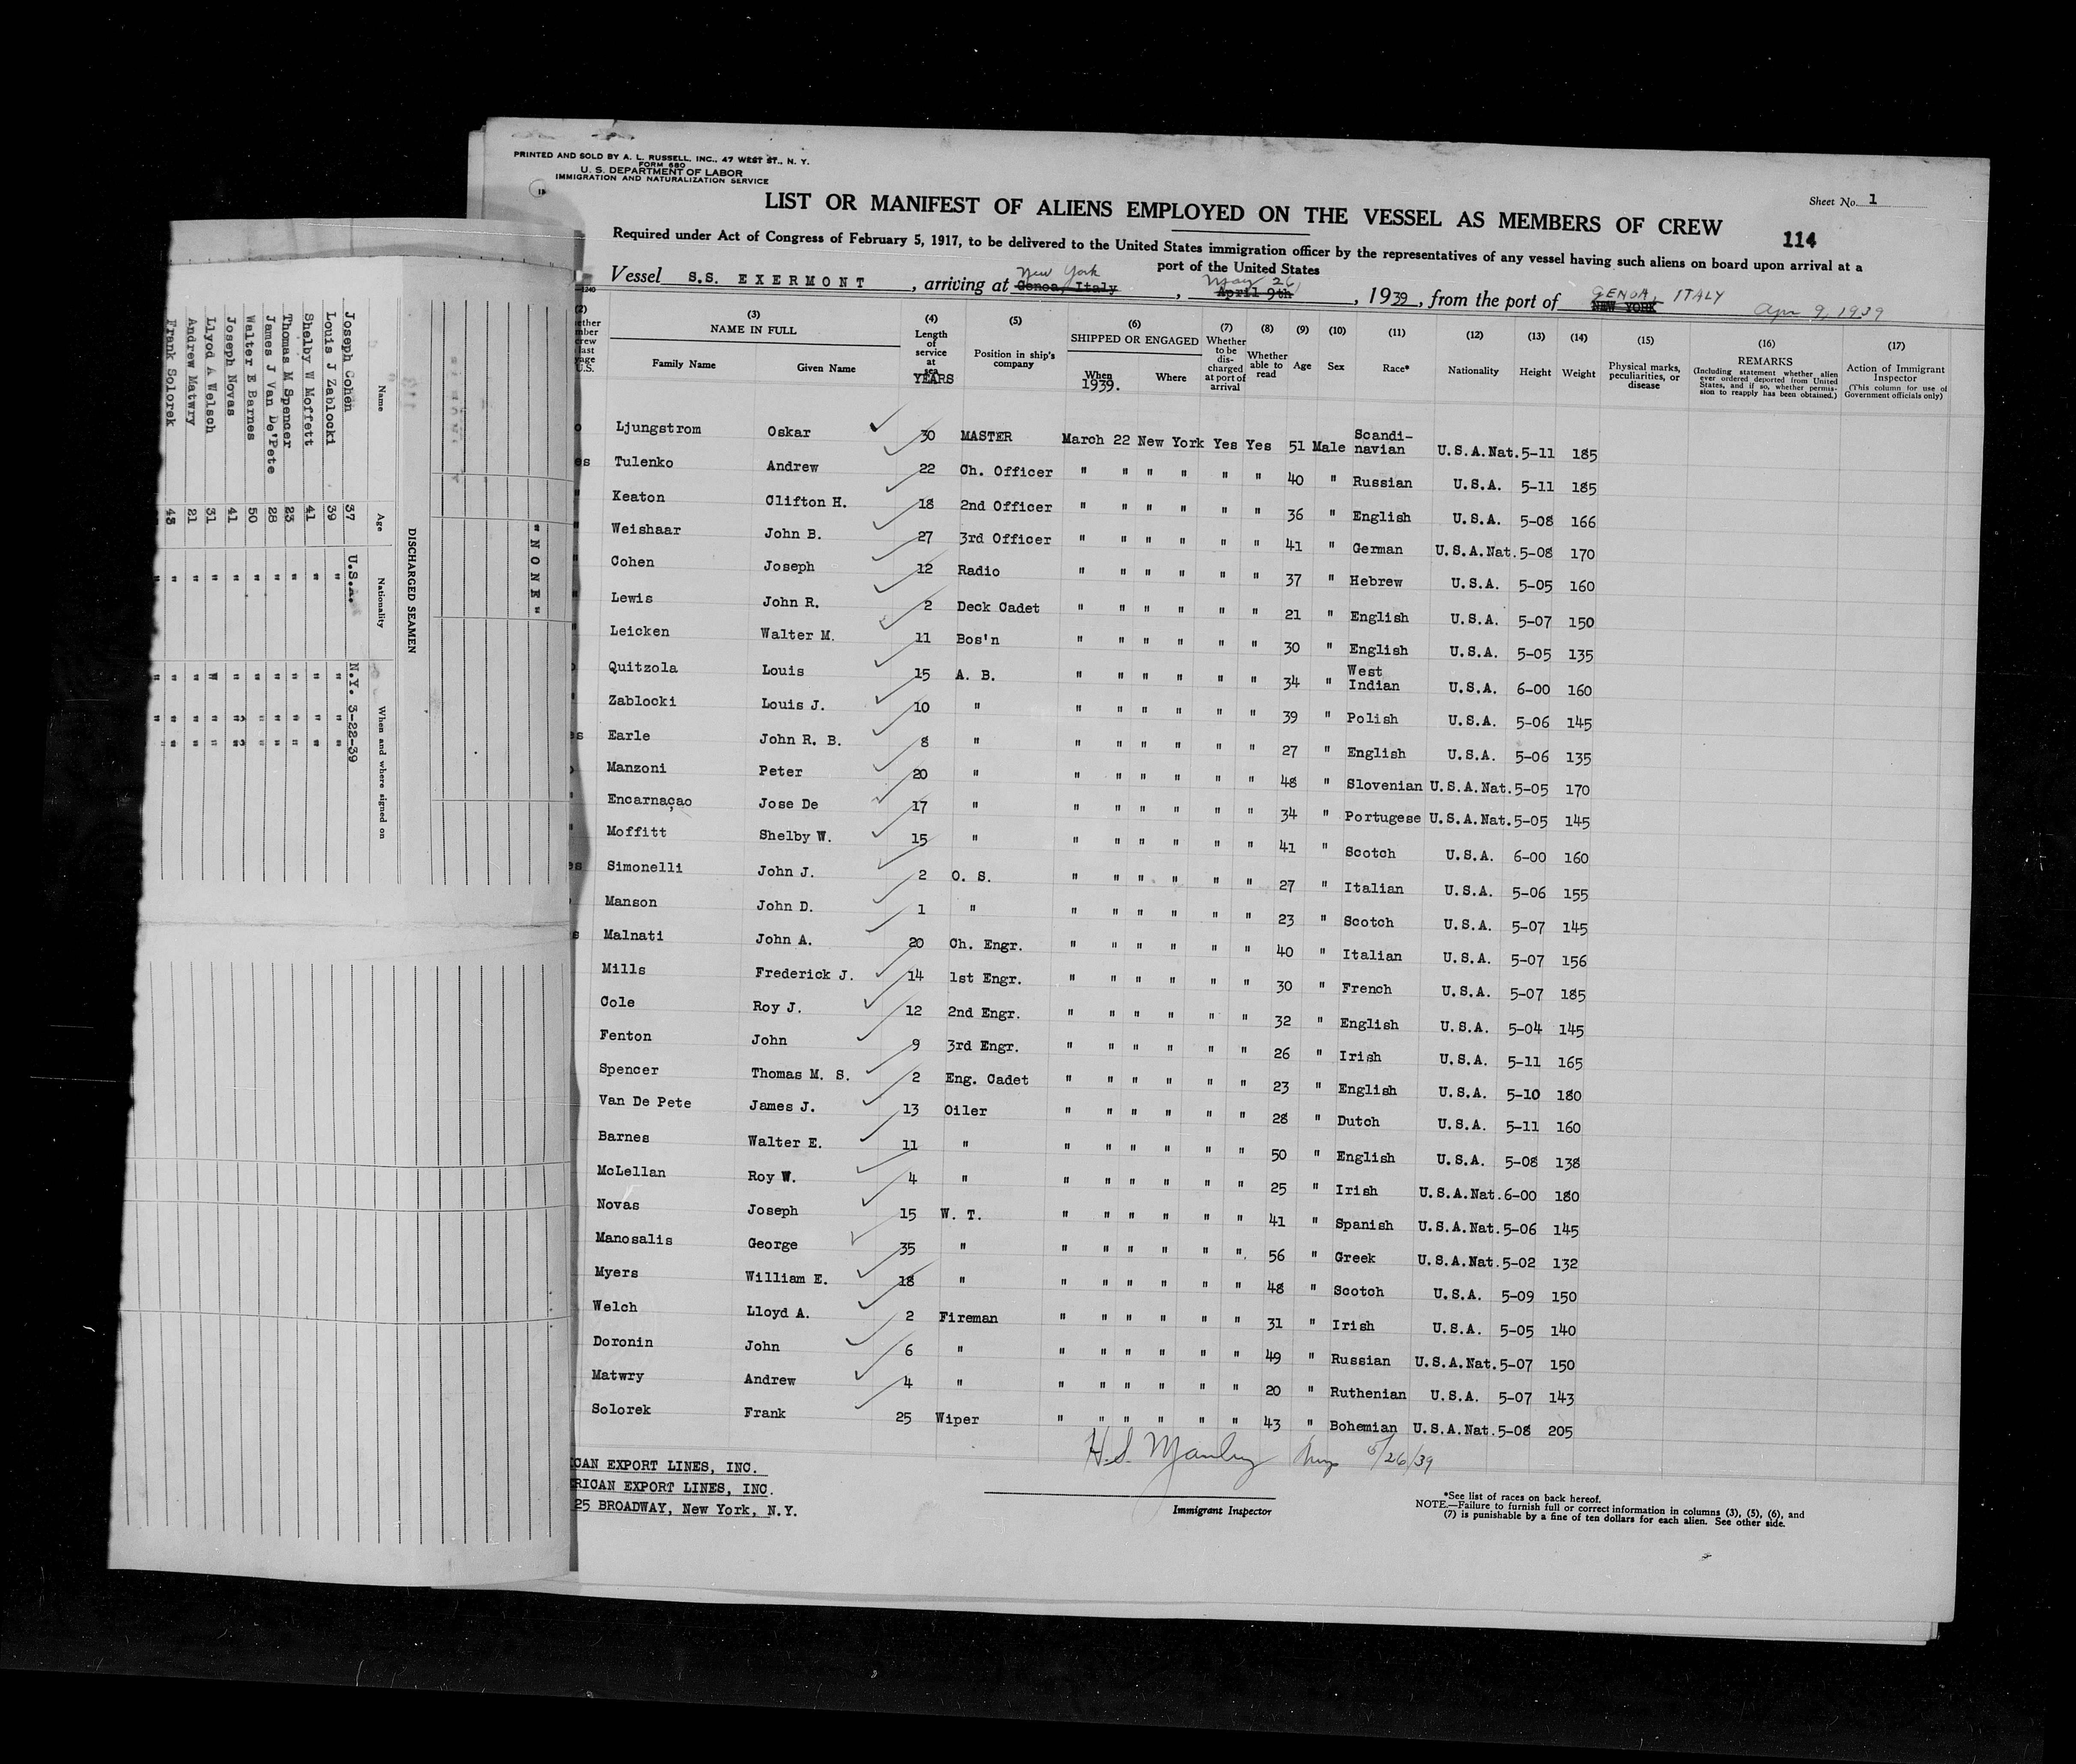 PRINTED AND SOLD BY A. L. RUSSELL, INC., 47 WEST ST., N. Y.
FORM 680
U. S. DEPARTMENT OF LABOR
IMMIGRATION AND NATURALIZATION SERVICE
Sheet No. 1
LIST OR MANIFEST OF ALIENS EMPLOYED ON THE VESSEL AS MEMBERS OF CREW
114
Required under Act of Congress of February 5, 1917, to be delivered to the United States immigration officer by the representatives of any vessel having such aliens on board upon arrival at a
port of the United States
New York May 26
Vessel S.S. EXERMONT, arriving at Genoa, Italy, April 9th, 1939, from the port of NEW YORK GENOA, ITALY Apr 9, 1939
(2) (3) (4) (5) (6) (7) (8) (9) (10) (11) (12) (13) (14) (15) (16) (17)
NAME IN FULL
Family Name Given Name
Length of service at sea YEARS
Position in ship's company
SHIPPED OR ENGAGED
When 1939. Where
Whether to be discharged at port of arrival
Whether able to read
Age Sex Race* Nationality Height Weight
Physical marks, peculiarities, or disease
REMARKS
(Including statement whether alien ever ordered deported from United States, and if so, whether permission to reapply has been obtained.)
Action of Immigrant Inspector
(This column for use of Government officials only)
Ljungstrom Oskar 30 MASTER March 22 New York Yes Yes 51 Male Scandi-navian U.S.A.Nat. 5-11 185
Tulenko Andrew 22 Ch. Officer " " " " " " 40 " Russian U.S.A. 5-11 185
Keaton Clifton H. 18 2nd Officer " " " " " " 36 " English U.S.A. 5-08 166
Weishaar John B. 27 3rd Officer " " " " " " 41 " German U.S.A.Nat. 5-08 170
Cohen Joseph 12 Radio " " " " " " 37 " Hebrew U.S.A. 5-05 160
Lewis John R. 2 Deck Cadet " " " " " " 21 " English U.S.A. 5-07 150
Leicken Walter M. 11 Bos'n " " " " " " 30 " English U.S.A. 5-05 135
Quitzola Louis 15 A. B. " " " " " " 34 " West Indian U.S.A. 6-00 160
Zablocki Louis J. 10 " " " " " " " 39 " Polish U.S.A. 5-06 145
Earle John R. B. 8 " " " " " " " 27 " English U.S.A. 5-06 135
Manzoni Peter 20 " " " " " " " 48 " Slovenian U.S.A.Nat. 5-05 170
Encarnaçao Jose De 17 " " " " " " " 34 " Portugese U.S.A.Nat. 5-05 145
Moffitt Shelby W. 15 " " " " " " " 41 " Scotch U.S.A. 6-00 160
Simonelli John J. 2 O. S. " " " " " " 27 " Italian U.S.A. 5-06 155
Manson John D. 1 " " " " " " " 23 " Scotch U.S.A. 5-07 145
Malnati John A. 20 Ch. Engr. " " " " " " 40 " Italian U.S.A. 5-07 156
Mills Frederick J. 14 1st Engr. " " " " " " 30 " French U.S.A. 5-07 185
Cole Roy J. 12 2nd Engr. " " " " " " 32 " English U.S.A. 5-04 145
Fenton John 9 3rd Engr. " " " " " " 26 " Irish U.S.A. 5-11 165
Spencer Thomas M. S. 2 Eng. Cadet " " " " " " 23 " English U.S.A. 5-10 180
Van De Pete James J. 13 Oiler " " " " " " 28 " Dutch U.S.A. 5-11 160
Barnes Walter E. 11 " " " " " " " 50 " English U.S.A. 5-08 138
McLellan Roy W. 4 " " " " " " " 25 " Irish U.S.A.Nat. 6-00 180
Novas Joseph 15 W. T. " " " " " " 41 " Spanish U.S.A.Nat. 5-06 145
Manosalis George 35 " " " " " " " 56 " Greek U.S.A.Nat. 5-02 132
Myers William E. 18 " " " " " " " 48 " Scotch U.S.A. 5-09 150
Welch Lloyd A. 2 Fireman " " " " " " 31 " Irish U.S.A. 5-05 140
Doronin John 6 " " " " " " " 49 " Russian U.S.A.Nat. 5-07 150
Matwry Andrew 4 " " " " " " " 20 " Ruthenian U.S.A. 5-07 143
Solorek Frank 25 Wiper " " " " " " 43 " Bohemian U.S.A.Nat. 5-08 205
H.S. Manley Insp 5/26/39
Immigrant Inspector
ICAN EXPORT LINES, INC.
RICAN EXPORT LINES, INC.
25 BROADWAY, New York, N.Y.
*See list of races on back hereof.
NOTE.—Failure to furnish full or correct information in columns (3), (5), (6), and
(7) is punishable by a fine of ten dollars for each alien. See other side.
"NONE"
DISCHARGED SEAMEN
Name Age Nationality When and where signed on
Joseph Cohen 37 U.S.A. N.Y. 3-22-39
Louis J Zablocki 39 " " " "
Shelby W Moffett 41 " " " "
Thomas M Spencer 23 " " " "
James J Van De'Pete 28 " " " "
Walter E Barnes 50 " " " "
Joseph Novas 41 " " " "
Llyod A Welsch 31 " " " "
Andrew Matwry 21 " " " "
Frank Solorek 43 " " " "